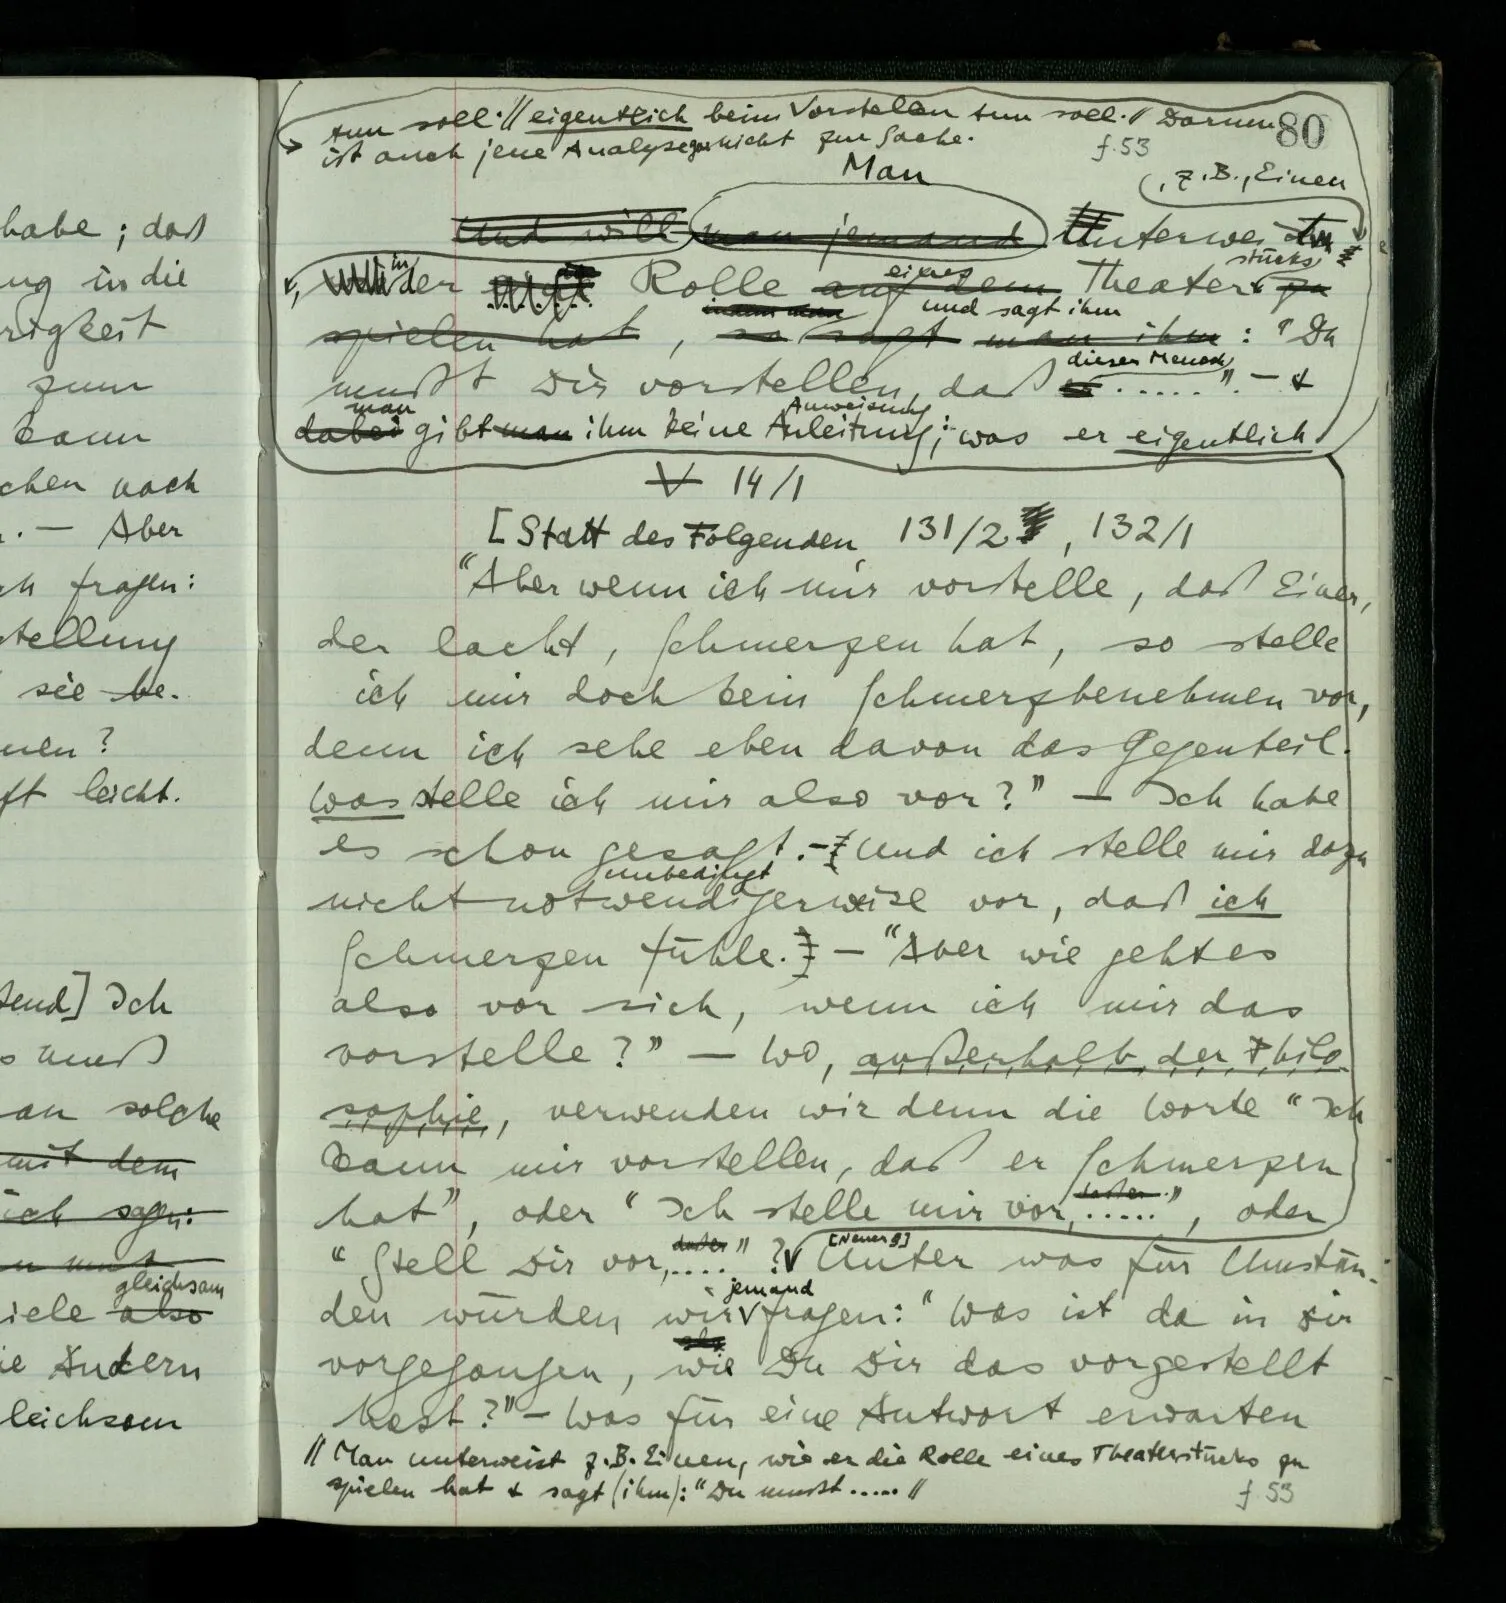 habe; daß
ng in die
rigkeit
zum
kann
chen nach
. — Aber
ch fragen:
stellung
sie be-
nen?
ft leicht.
tend] Ich
s muß
an solche
mit dem
ich sagen:
gleichsam
iele also
ie Andern
leichsam
tun soll.// eigentlich beim Vorstellen tun soll.// Darum
80
ist auch jene Analyse gar nicht zur Sache.
f. 53
Man
, z.B., Einen
Und will man jemand Unterwei
in
eines
stücks
der Rolle auf dem Theater zu
indem man
und sagt ihm
spielen hat, so sagt man ihm : "Du
dieser Mensch
mußt Dir vorstellen, daß er ....." . — &
man
Anweisung
dabei gibt man ihm keine Anleitung; was er eigentlich
∀ 14/1
[Statt des Folgenden 131/2, 132/1
"Aber wenn ich mir vorstelle, daß Einer,
der lacht, Schmerzen hat, so stelle
ich mir doch kein Schmerzbenehmen vor,
denn ich sehe eben davon das Gegenteil.
Was stelle ich mir also vor?" — Ich habe
es schon gesagt. — Und ich stelle mir dazu
unbedingt
nicht notwendigerweise vor, daß ich
Schmerzen fühle. — "Aber wie geht es
also vor sich, wenn ich mir das
vorstelle?" — Wo, außerhalb der Philo-
sophie, verwenden wir denn die Worte "Ich
kann mir vorstellen, daß er Schmerzen
hat", oder "Ich stelle mir vor, daß er ....", oder
"Stell Dir vor, daß er ...." ? [Neuer §] Unter was für Umstän-
jemand
den würden wir fragen: "Was ist da in Dir
als
vorgegangen, wie Du Dir das vorgestellt
hast?" — Was für eine Antwort erwarten
// Man unterweist z.B. Einen, wie er die Rolle eines Theaterstücks zu
spielen hat & sagt (ihm): "Du mußt ..... //
f. 53